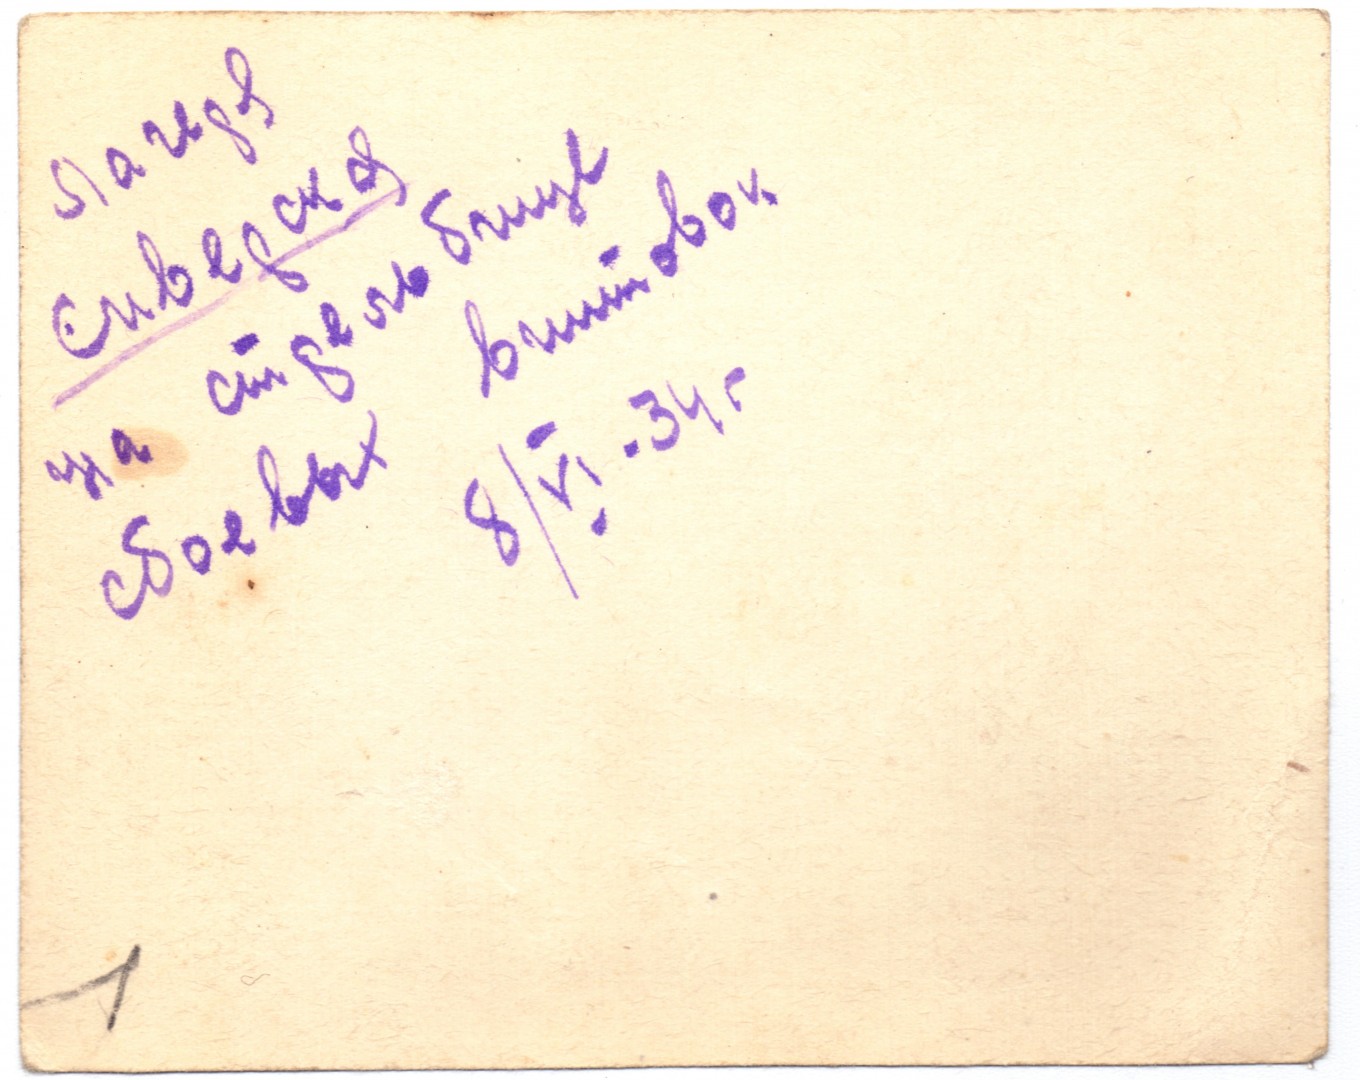 Лагеря
Сиверская
на стрельбище
с боевых винтовок.
8/VI.-34г
1